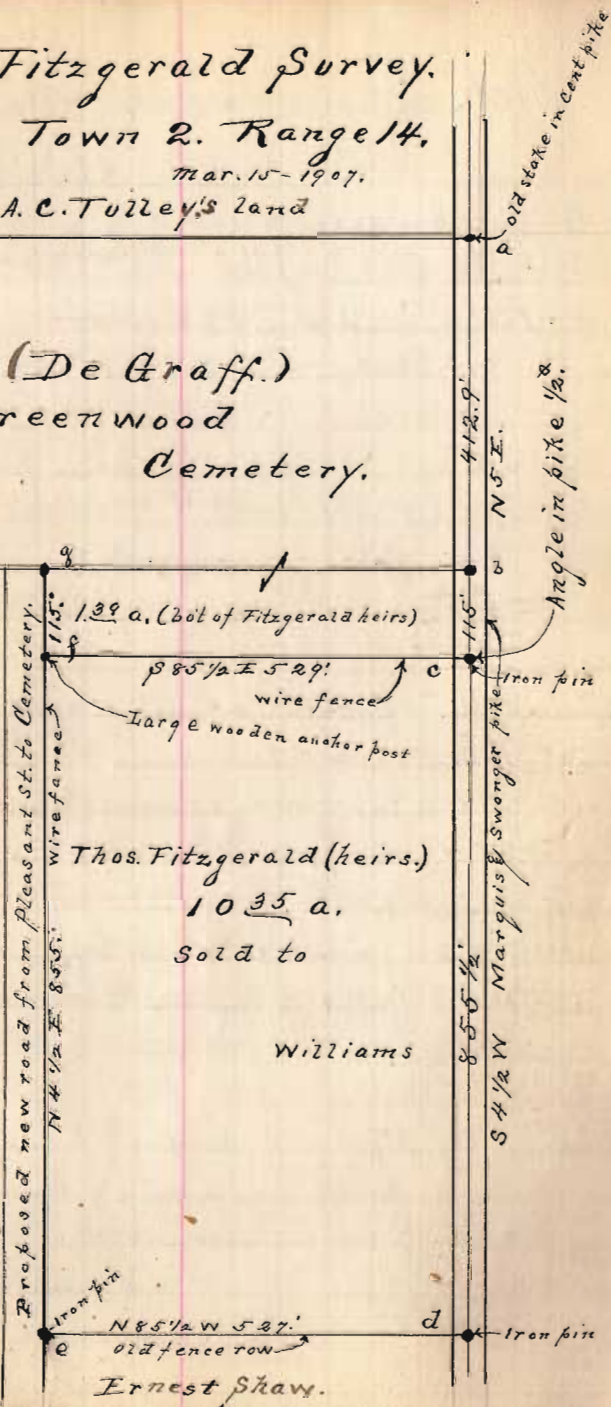 Fitzgerald Survey.
Town 2. Range 14.
Mar. 15 - 1907.
A. C. Tulley's land
old stake in cent pike
a
(De Graff.)
reenwood
Cemetery.
412.9'
N 5 E.
Angle in pike 1/2°
g
b
1.39 a. (bo't of Fitzgerald heirs)
115.'
115'
f
S 85 1/2 E 529.'
c
Iron pin
wire fence
Large wooden anchor post
Proposed new road from Pleasant St. to Cemetery.
wire fence
N 4 1/2 E 855.'
Thos. Fitzgerald (heirs.)
10 35 a.
Sold to
Williams
855 1/2'
S 4 1/2 W
Marquis & Swonger pike
Iron pin
N 85 1/2 W 527.'
d
Iron pin
e
old fence row
Ernest Shaw.